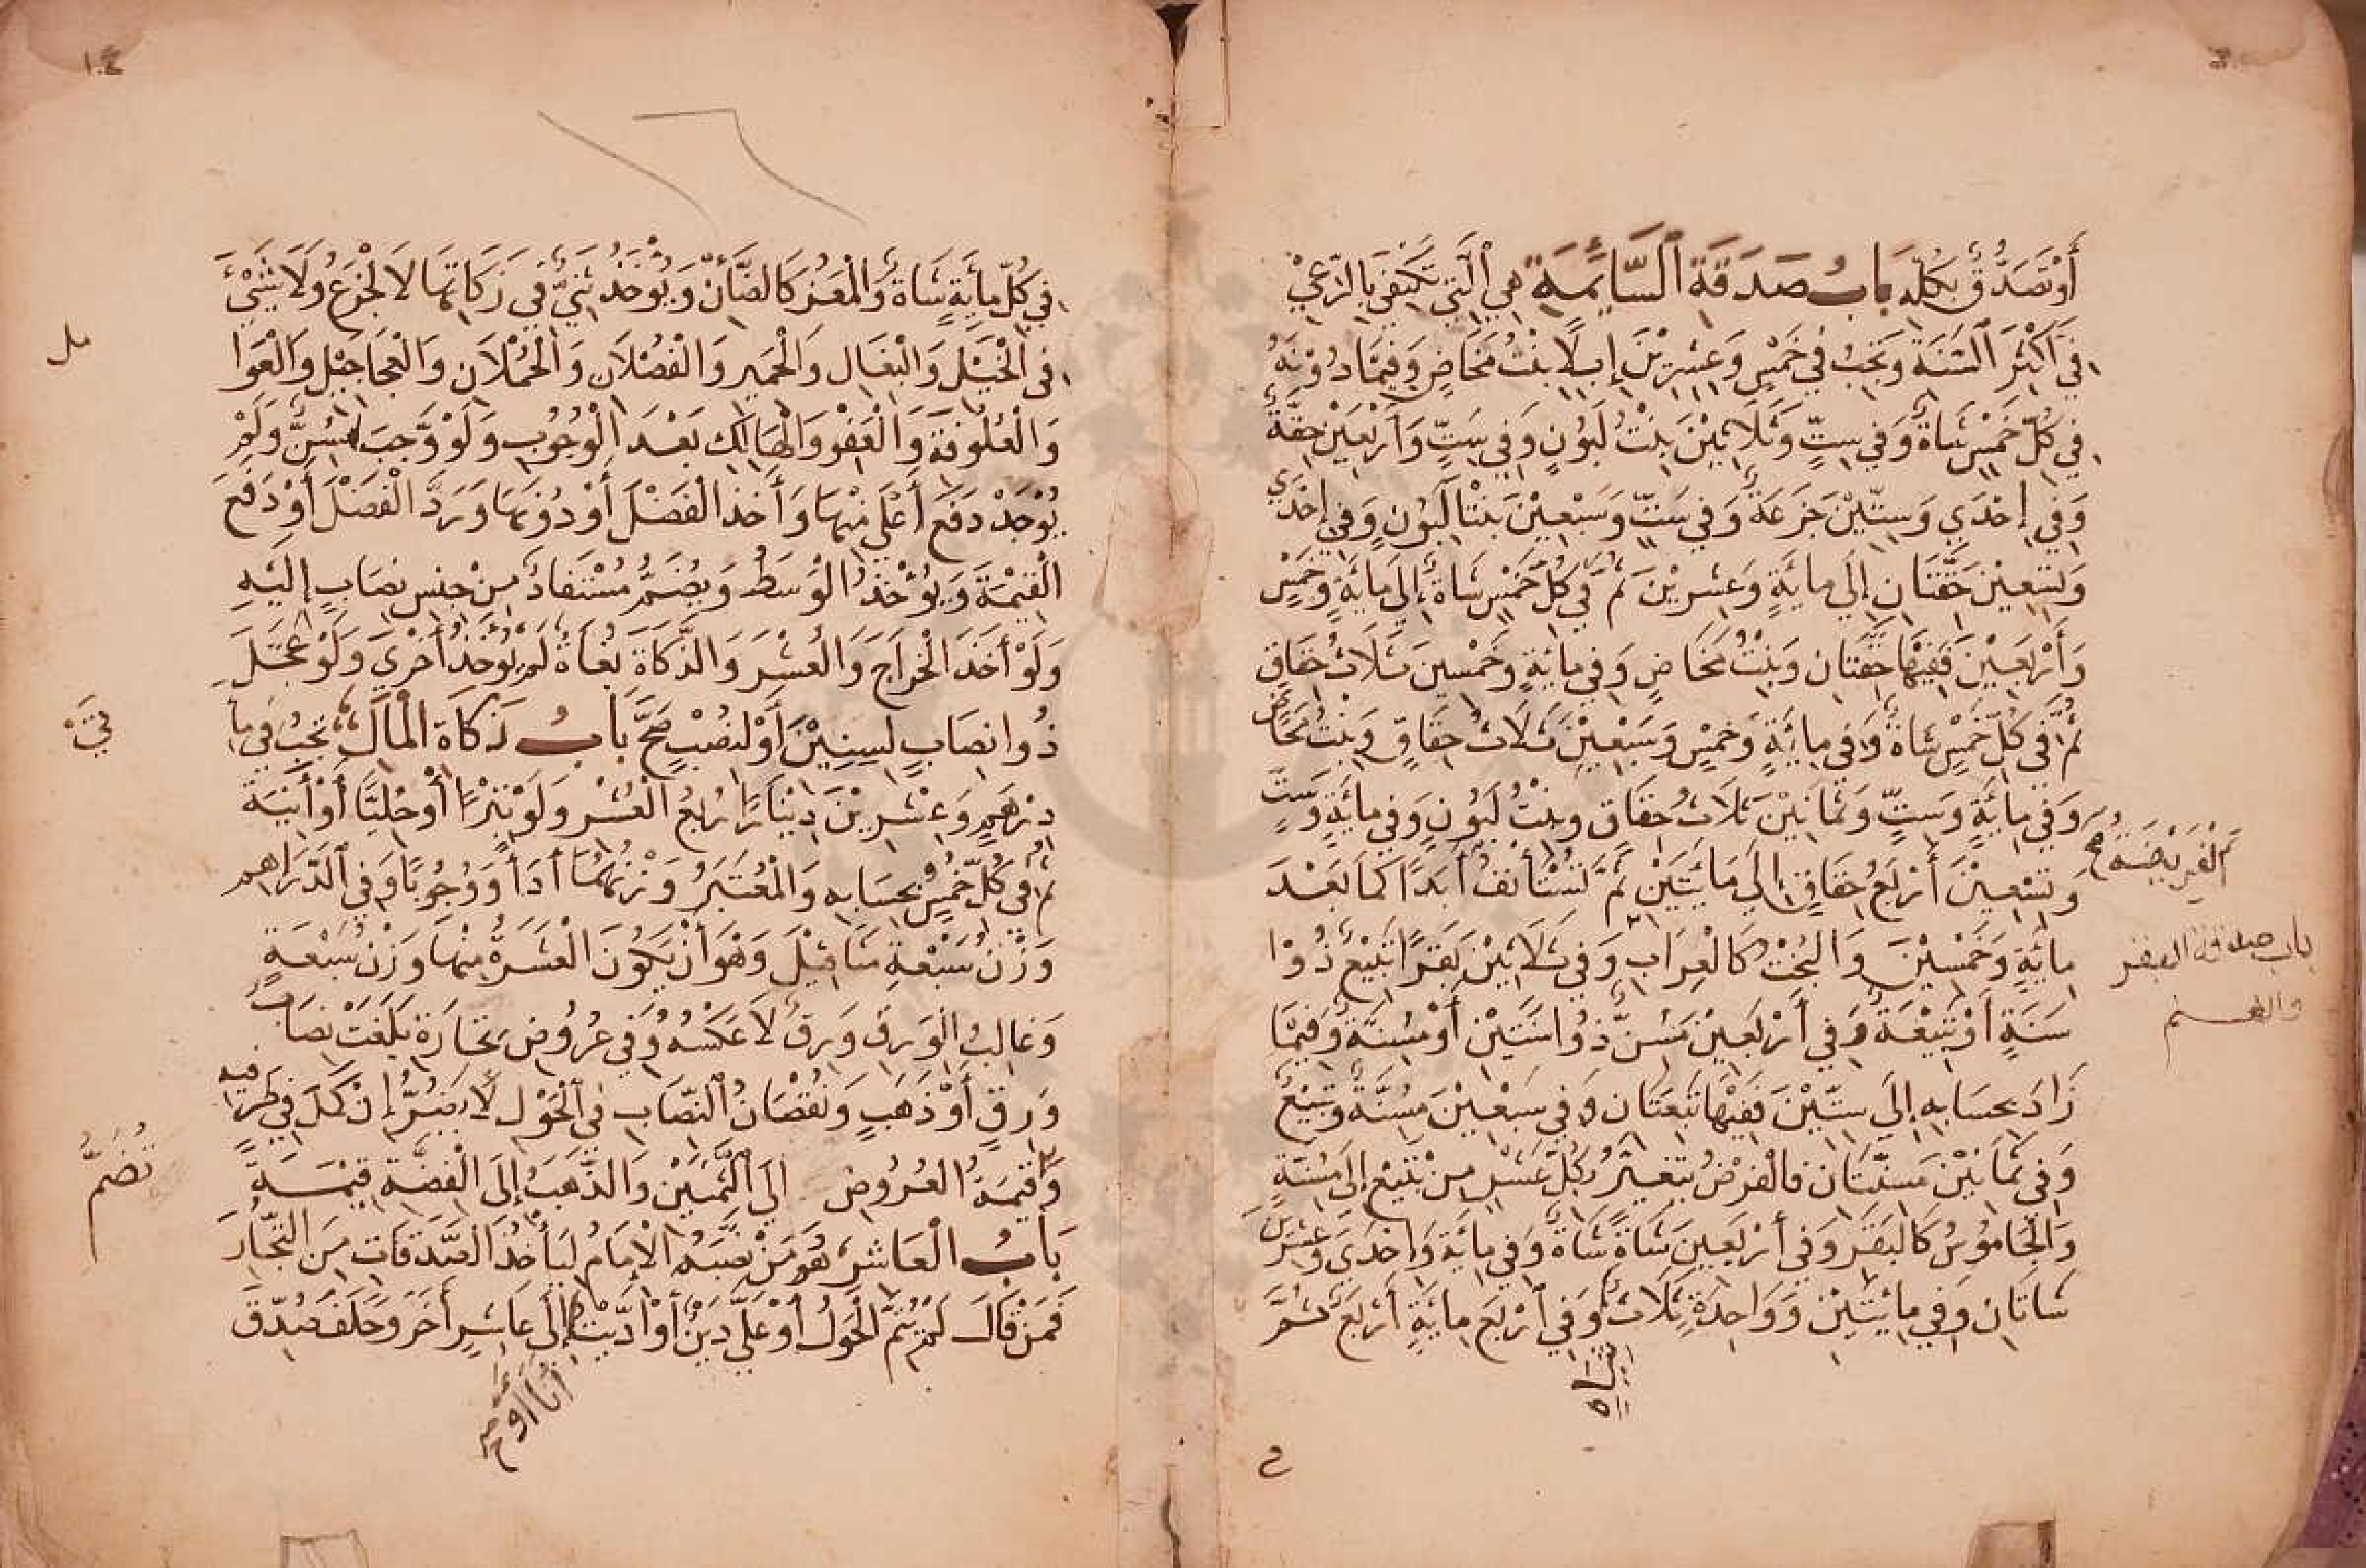 أَوْ تَصَدَّقَ بِكُلِّهِ بَابُ صَدَقَةِ السَّايِمَةِ هِيَ الَّتِي تَكْتَفِي بِالرَّعْيِ
فِي أَكْثَرِ السَّنَةِ وَيَجِبُ فِي خَمْسٍ وَعِشْرِيْنَ إِبِلًا بِنْتُ مَخَاضٍ وَفِيْمَا دُوْنَهُ
فِي كُلِّ خَمْسٍ شَاةٌ وَفِي سِتٍّ وَثَلَاثِيْنَ بِنْتُ لَبُوْنٍ وَفِي سِتٍّ وَأَرْبَعِيْنَ حِقَّةٌ
وَفِي إِحْدَي وَسِتِّيْنَ جَزَعَةٌ وَفِي سِتٍّ وَسَبْعِيْنَ بِنْتَا لَبُوْنٍ وَفِي إِحْدَي
وَتِسْعِيْنَ حِقَّتَانِ إِلَى مِايَةٍ وَعِشْرِيْنَ ثُمَّ فِي كُلِّ خَمْسٍ شَاةٌ إِلَى مِايَةٍ وَخَمْسٍ
وَأَرْبَعِيْنَ فَفِيْهَا حِقَّتَانِ وَبِنْتُ مَخَاضٍ وَفِي مِايَةٍ وَخَمْسِيْنَ ثَلَاثُ حِقَاقٍ
ثُمَّ فِي كُلِّ خَمْسٍ شَاةٌ وَفِي مِايَةٍ وَخَمْسٍ وَسَبْعِيْنَ ثَلَاثُ حِقَاقٍ وَبِنْتُ مَخَاضٍ
وَفِي مِايَةٍ وَسِتٍّ وَثَمَانِيْنَ ثَلَاثُ حِقَاقٍ وَبِنْتُ لَبُوْنٍ وَفِي مِايَةٍ وَسِتٍّ
وَتِسْعِيْنَ أَرْبَعُ حِقَاقٍ إِلَى مِايَتَيْنِ ثُمَّ تُسْتَأْنَفُ أَبَدًا كَمَا بَعْدَ
الْفَرِيْضَةُ
مِايَةٍ وَخَمْسِيْنَ وَالْبُخْتُ كَالْعِرَابِ وَفِي ثَلَاثِيْنَ بَقَرًا تَبِيْعٌ ذُوْا
باب صدقة البقر
والغنم
سَنَةٍ أَوْ تَبِيْعَةٌ وَفِي أَرْبَعِيْنَ مُسِنٌّ ذُوا سَنَتَيْنِ أَوْ مُسِنَّةٌ وَفِيْمَا
زَادَ بِحِسَابِهِ إِلَى سِتِّيْنَ فَفِيْهَا تَبِعَتَانِ وَفِي سَبْعِيْنَ مُسِنَّةٌ وَتَبِيْعٌ
وَفِي ثَمَانِيْنَ مُسِنَّتَانِ فَالْفَرْضُ يَتَغَيَّرُ بِكُلِّ عَشْرٍ مِنْ تَبِيْعٍ إِلَى مُسِنَّةٍ
وَالْجَامُوْسُ كَالْبَقَرِ وَفِي أَرْبَعِيْنَ شَاةً شَاةٌ وَفِي مِايَةٍ وَإِحْدَي وَعِشْرِيْنَ
شَاتَانِ وَفِي مِايَتَيْنِ وَوَاحِدَةٍ ثَلَاثٌ وَفِي أَرْبَعِ مِايَةٍ أَرْبَعٌ ثُمَّ
فِي كُلِّ مِايَةٍ شَاةٌ وَالْمَعْزُ كَالضَّأْنِ وَيُوْخَذُ ثَنِيٌّ فِي زَكَاتِهَا لَا الْجَزَعُ وَلَا شَيْئَ
فِي الْخَيْلِ وَالْبِغَالِ وَالْحَمِيْرِ وَالْفُصْلَانِ وَالْحُمْلَانِ وَالْعَجَاجِيْلِ وَالْعَوَا
مل
وَالْعُلُوْفَةِ وَالْعَفْوِ وَالْهَالِكِ بَعْدَ الْوُجُوْبِ وَلَوْ وَجَبَ مُسِنٌّ وَلَمْ
يُوْجَدْ دَفَعَ أَعْلَى مِنْهَا وَأَخَذَ الْفَضْلَ أَوْ دُوْنَهَا وَرَدَّ الْفَضْلَ أَوْ دَفَعَ
الْقِيْمَةَ وَيُؤْخَذُ الْوَسَطُ وَيُضَمُّ مُسْتَفَادٌ مِنْ جِنْسِ نِصَابٍ إِلَيْهِ
وَلَوْ أَخَذَ الْخَرَاجَ وَالْعُشْرَ وَالزَّكَاةَ بُغَاةٌ لَمْ يُوْخَذْ أُخْرَي وَلَوْ عَجَّلَ
ذُوا نِصَابٍ لِسِنِيْنَ أَوْ لِنُصُبٍ صَحَّ بَابُ زَكَاةِ الْمَالِ يَجِبُ فِي مِأَ
تَيْ
دِرْهَمٍ وَعِشْرِيْنَ دِيْنَارًا رُبْعُ الْعُشْرِ وَلَوْ تِبْرًا أَوْ حُلِيًّا أَوْ أَنِيَةً
ثُمَّ فِي كُلِّ خُمْسٍ بِحِسَابِهِ وَالْمُعْتَبَرُ وَزْنُهُمَا أَدَاً وَوُجُوْبًا وَفِي الدَّرَاهِمِ
وَزْنُ سَبْعَةِ مَثَاقِيْلَ وَهُوَ أَنْ يَكُوْنَ الْعَشَرَةُ مِنْهَا وَزْنُ سَبْعَةٍ
وَغَالِبُ الْوَرِقِ وَرِقٌ لَا عَكْسُهُ وَفِي عُرُوْضِ تِجَارَةٍ بَلَغَتْ نِصَابَ
وَرِقٍ أَوْ ذَهَبٍ وَنُقْصَانُ النِّصَابِ فِي الْحَوْلِ لَا يَضُرُّ إِنْ كَمُلَ فِي طَرَفَيْهِ
وَقِيْمَةُ الْعُرُوْضِ إِلَى الثَّمَنَيْنِ وَالذَّهَبُ إِلَى الْفِضَّةِ قِيْمَةً
تُضَمُّ
بَابُ الْعَاشِرِ هُوَ مَنْ نَصَبَهُ الْإِمَامُ لِيَأْخُذَ الصَّدَقَاتِ مِنَ التُّجَّارِ
فَمَنْ قَالَ لَمْ يَتِمَّ الْحَوْلُ أَوْ عَلَيَّ دَيْنٌ أَوْ أَدَّيْتُ إِلَى عَاشِرٍ أَخَرَ وَحَلَفَ صُدِّقَ